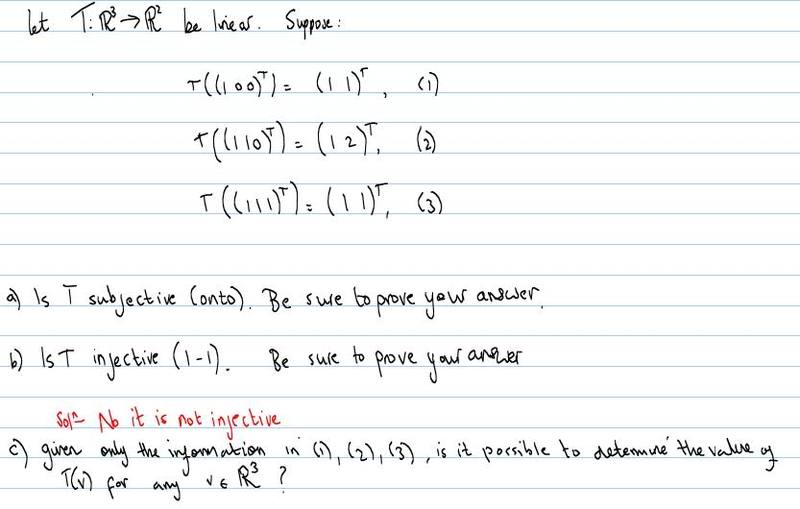 let T: ℝ³ → ℝ² be linear. Suppose:
T((1 0 0)ᵀ) = (1 1)ᵀ, (1)
T((1 1 0)ᵀ) = (1 2)ᵀ, (2)
T((1 1 1)ᵀ) = (1 1)ᵀ, (3)
a) Is T subjective (onto). Be sure to prove your answer.
b) Is T injective (1-1). Be sure to prove your answer
Solⁿ- No it is not injective
c) given only the information in (1), (2), (3), is it possible to determine the value of
T(v) for any v ∈ ℝ³ ?